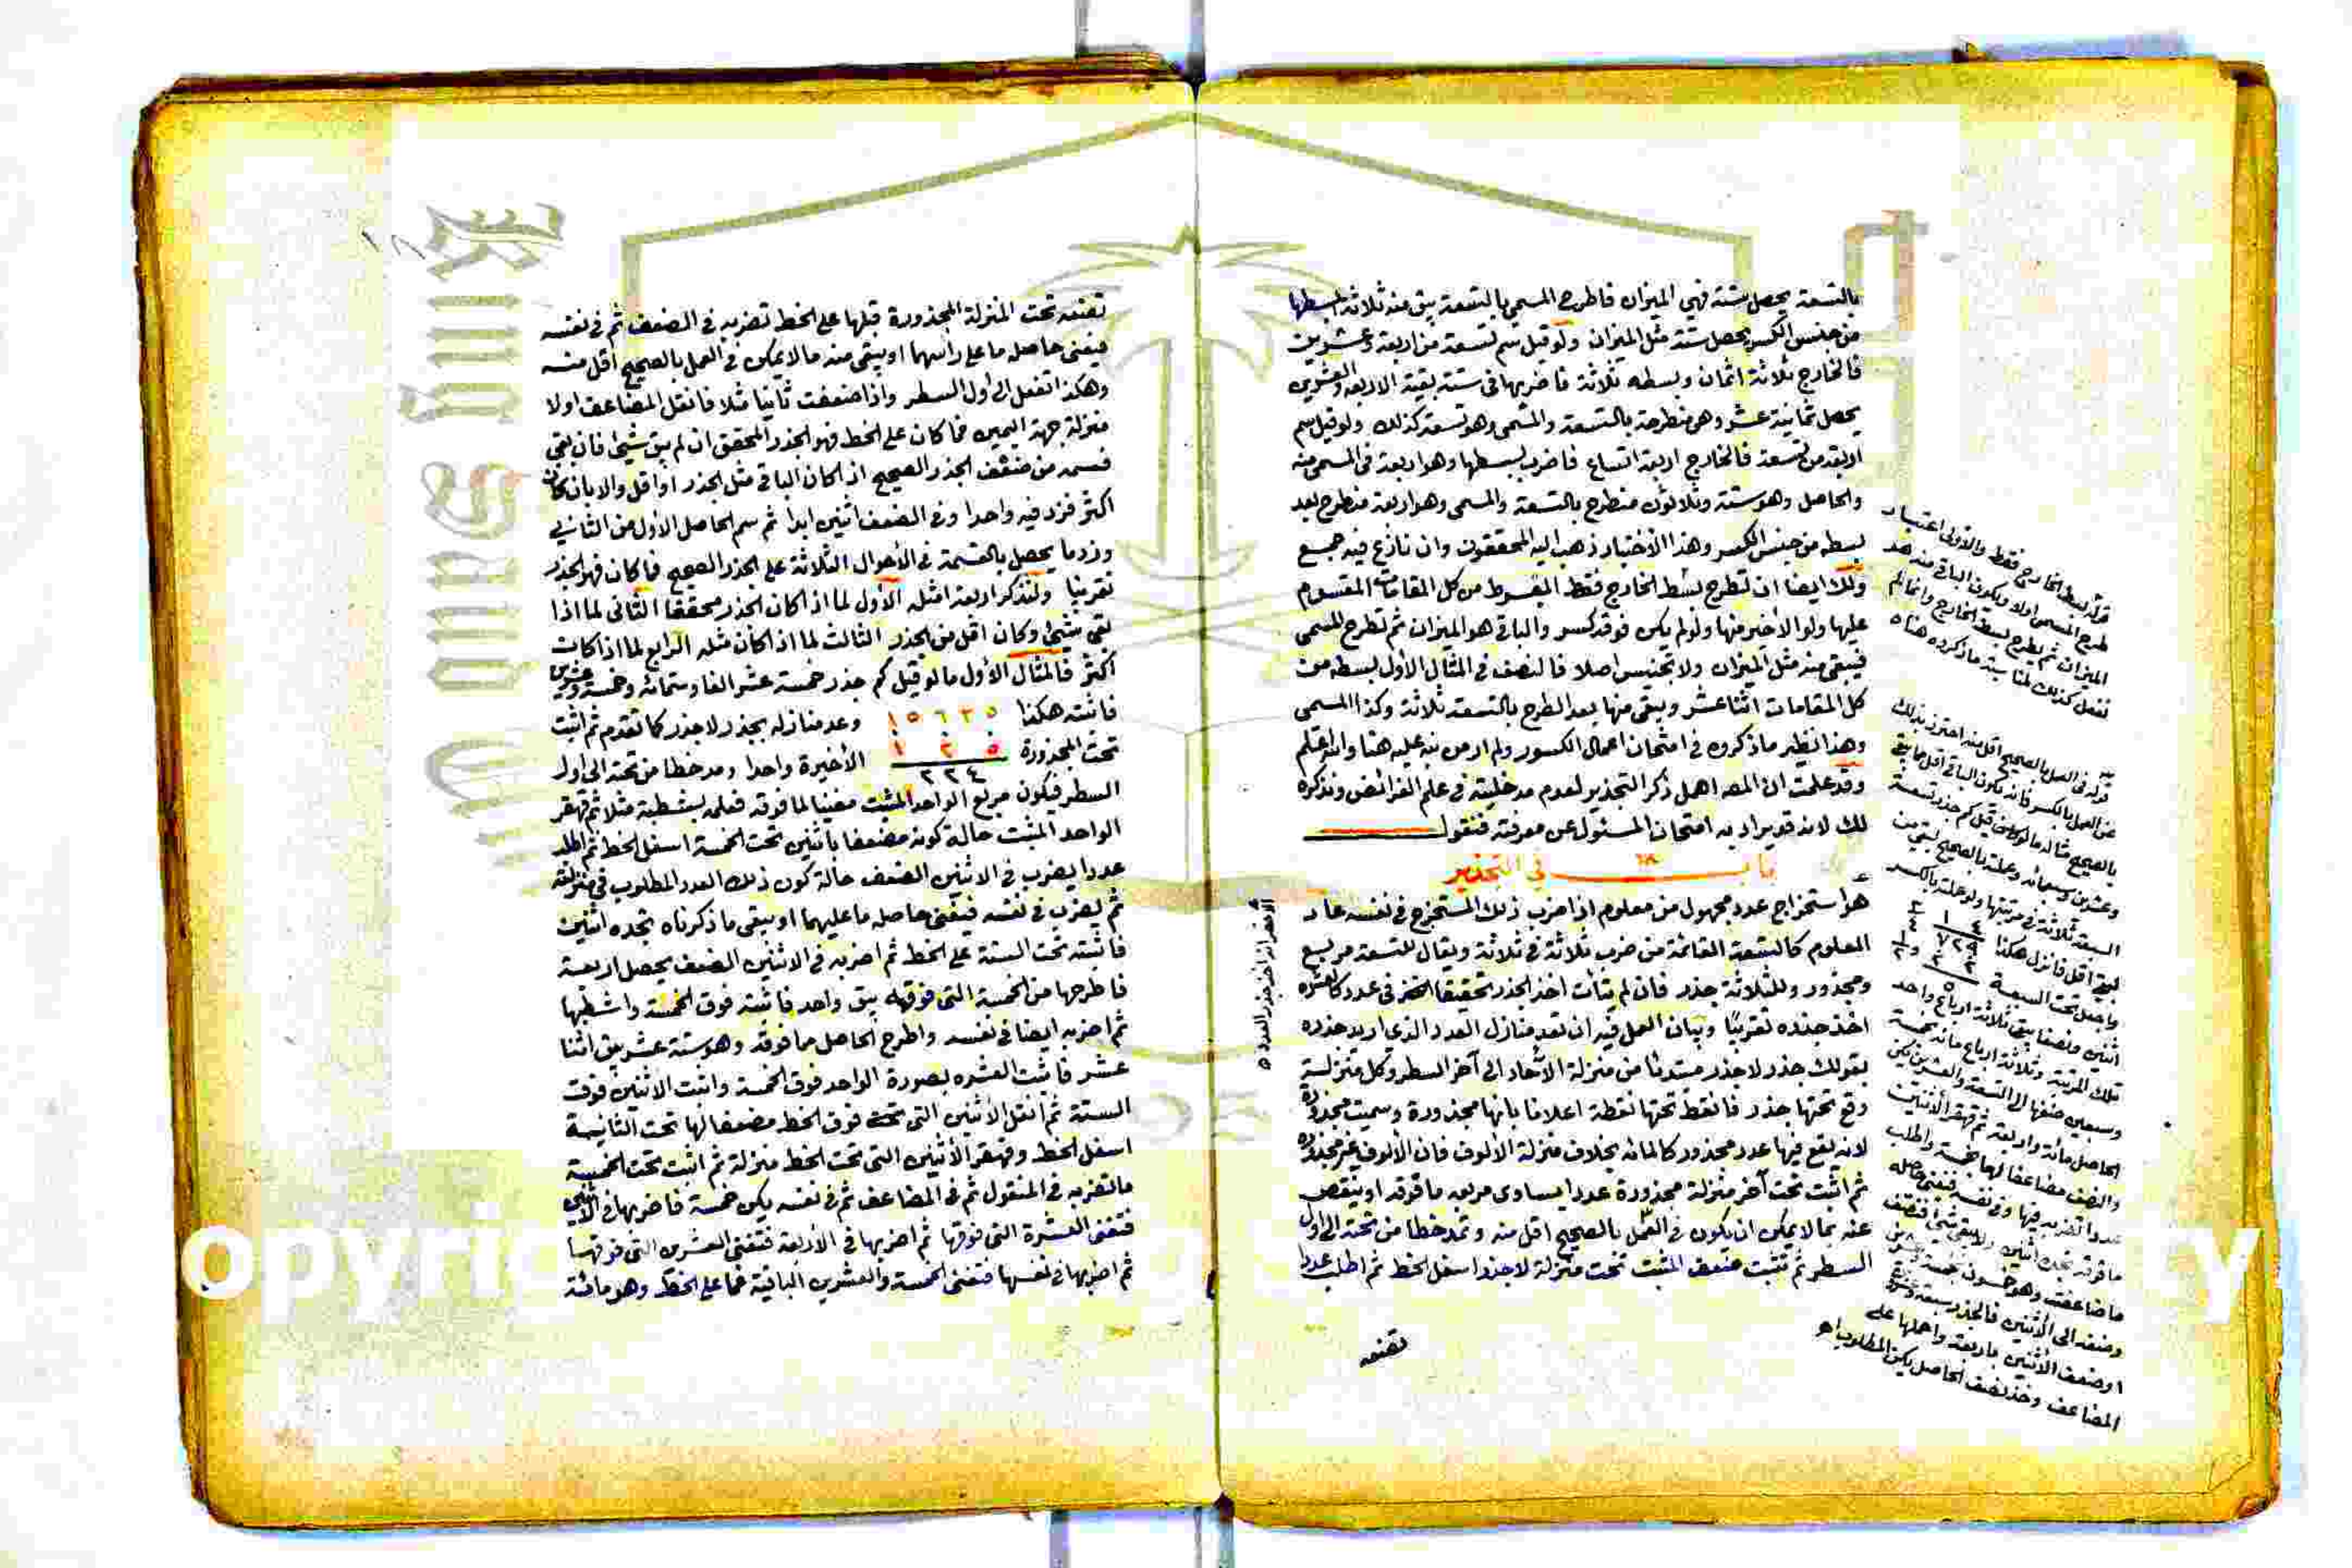 بالتسعة يحصل ستة فهي الميزان فاطرح المسمى بالتسعة يبق منه ثلاثة ابسطها
من جنس الكسر يحصل ستة مثل الميزان ولو قيل سم تسعة من اربعة وعشرين
فالخارج ثلاثة اثمان وبسطه ثلاثة فاضربها في ستة بقية الاربعة والعشرين
يحصل ثمانية عشر وهي منطرحة بالتسعة والمسمى وهو تسعة كذلك ولو قيل سم
اربعة من تسعة فالخارج اربعة اتساع فاضرب بسطها وهو اربعة في المسمى منه
والحاصل وهو ستة وثلاثون منطرح بالتسعة والمسمى وهو اربعة منطرح بعد
بسطه من جنس الكسر وهذا الاختبار ذهب اليه المحققون وان نازع فيه جمع
ولك ايضا ان تطرح بسط الخارج فقط المبسوط من كل المقامات المقسوم
عليها ولو الاخير منها ولو لم يكن فوقه كسر والباقي هو الميزان ثم تطرح المسمى
فيبقى منه مثل الميزان ولا تجنس اصلا فالنصف في المثال الاول بسطه من
كل المقامات اثنا عشر ويبقى منها بعد الطرح بالتسعة ثلاثة وكذا المسمى
وهذا نظير ما ذكروه في امتحان اعمال الكسور ولم ار من نبه عليه هنا والله اعلم
وقد علمت ان المص اهمل ذكر التجذير لعدم مدخليته في علم الفرائض ونذكره
لك لانه قد يراد به امتحان المسئول عن معرفته فنقول
باب في التجذير
هو استخراج عدد مجهول من معلوم اذا ضرب ذلك المستخرج في نفسه عاد
المعلوم كالتسعة القائمة من ضرب ثلاثة في ثلاثة ويقال للتسعة مربع
ومجذور وللثلاثة جذر فان لم يتأت اخذ الجذر تحقيقا لكثر في عدد كالعشرة
اخذ جذره تقريبا وبيان العمل فيه ان تعد منازل العدد الذي اريد جذره
بقولك جذر لا جذر مبتدئا من منزلة الآحاد الى آخر السطر وكل منزلة
وقع تحتها جذر فانقط تحتها نقطة اعلانا بانها مجذورة وسميت مجذورة
لانه يقع فيها عدد مجذور كالمائة بخلاف منزلة الألوف فان الألوف غير مجذورة
ثم اثبت تحت آخر منزلة مجذورة عددا يساوى مربعه ما فوقه او ينقص
عنه بما لا يمكن ان يكون في العمل بالصحيح اقل منه وتمد خطا من تحته الى اول
السطر ثم تثبت ضعف المثبت تحت منزلة لا جذر اسفل الخط ثم اطلب عددا
تضعه
قوله بسط الخارج فقط والاولى اعتبار
طرح المسمى اولا ويكون الباقي منه هو
الميزان ثم يطرح بسط الخارج وانما لم
نفعل كذلك لمناسبة ما ذكروه هنا ه
قوله في العمل بالصحيح اقل منه احترز بذلك
عن العمل بالكسر فانه يكون الباقي اقل مما يبقى
بالصحيح مثاله ما لو قيل كم جذر تسعة
وعشرين وسبعمائة وعملته بالصحيح لبقي من
السبعة ثلاثة في مرتبتها ولو عملته بالكسر
لبقي اقل فانزل هكذا
واجعل تحت السبعة
اثنين ونصفا يبقى ثلاثة ارباع واحد
تلك المرتبة وثلاثة ارباع مائة بخمسة
وسبعين ضفها الى التسعة والعشرين يكن
الحاصل مائة واربعة ثم قهقر الاثنين
والنصف مضاعفا لها بخمسة واطلب
عددا تضربه فيها وفي نفسه فيفنى حاصله
ما فوقه تجده اثنين ولا يبقى شئ فنصف
ما ضاعفت وهو خمسون خمسة وعشرين
وضفه الى الاثنين فالجذر سبعة وعشرون
او ضعف الاثنين باربعة واحملها على
المضاعف وخذ نصف الحاصل يكن المطلوب اه
١٨
تضعه تحت المنزلة المجذورة قبلها على الخط تضربه في الضعف ثم في نفسه
فيفنى حاصله ما على رأسهما او يبقى منه ما لا يمكن في العمل بالصحيح اقل منه
وهكذا تفعل الى اول السطر واذا ضعفت ثانيا مثلا فانقل المضاعف اولا
منزلة جهة اليمين فما كان على الخط فهو الجذر المحقق ان لم يبق شيئ فان بقي
فسمه من ضعف الجذر الصحيح اذا كان الباقي مثل الجذر او اقل والا بان كان
اكثر فزد فيه واحدا وفي الضعف اثنين ابدا ثم سم الحاصل الأول من الثاني
وزد ما يحصل بالقسمة في الأحوال الثلاثة على الجذر الصحيح فما كان فهو الجذر
تقريبا ولنذكر اربعة امثلة الأول لما اذا كان الجذر محققا الثاني لما اذا
بقي شيئ وكان اقل من الجذر الثالث لما اذا كان مثله الرابع لما اذا كان
اكثر فالمثال الأول ما لو قيل كم جذر خمسة عشر الفا وستمائة وخمسة وعشرين
فاثبته هكذا ١٥٦٢٥ وعد منازله بجذر لا جذر كما تقدم ثم اثبت
تحت المجذورة ١ ٢ ٥ الأخيرة واحدا ومد خطا من تحته الى اول
٢٢٤
السطر فيكون مربع الواحد المثبت مفنيا لما فوقه فعلمه بشطبة مثلا ثم قهقر
الواحد المثبت حالة كونه مضعفا باثنين تحت الخمسة اسفل الخط ثم اطلب
عددا يضرب في الاثنين الضعف حالة كون ذلك العدد المطلوب في منزلته
ثم يضرب في نفسه فيفنى حاصله ما عليهما او يبقى ما ذكرناه تجده اثنين
فاثبته تحت الستة على الخط ثم اضربه في الاثنين الضعف يحصل اربعة
فاطرحها من الخمسة التي فوقها يبق واحد فاثبته فوق الخمسة واشطبها
ثم اضربه ايضا في نفسه واطرح الحاصل مما فوقه وهو ستة عشر يبق اثنا
عشر فاثبت العشرة بصورة الواحد فوق الخمسة واثبت الاثنين فوق
الستة ثم انقل الأثنين التي تحته فوق الخط مضعفا لها تحت الثانية
اسفل الخط وقهقر الأثنين التي تحت الخط منزلة ثم اثبت تحت الخمسة
ما تضربه في المنقول ثم في المضاعف ثم في نفسه يكن خمسة فاضربها في الاثنين
فتفنى العشرة التي فوقها ثم اضربها في الأربعة فتفنى العشرين التي فوقها
ثم اضربها في نفسها فتفنى الخمسة والعشرين الباقية فما على الخط وهو مائة